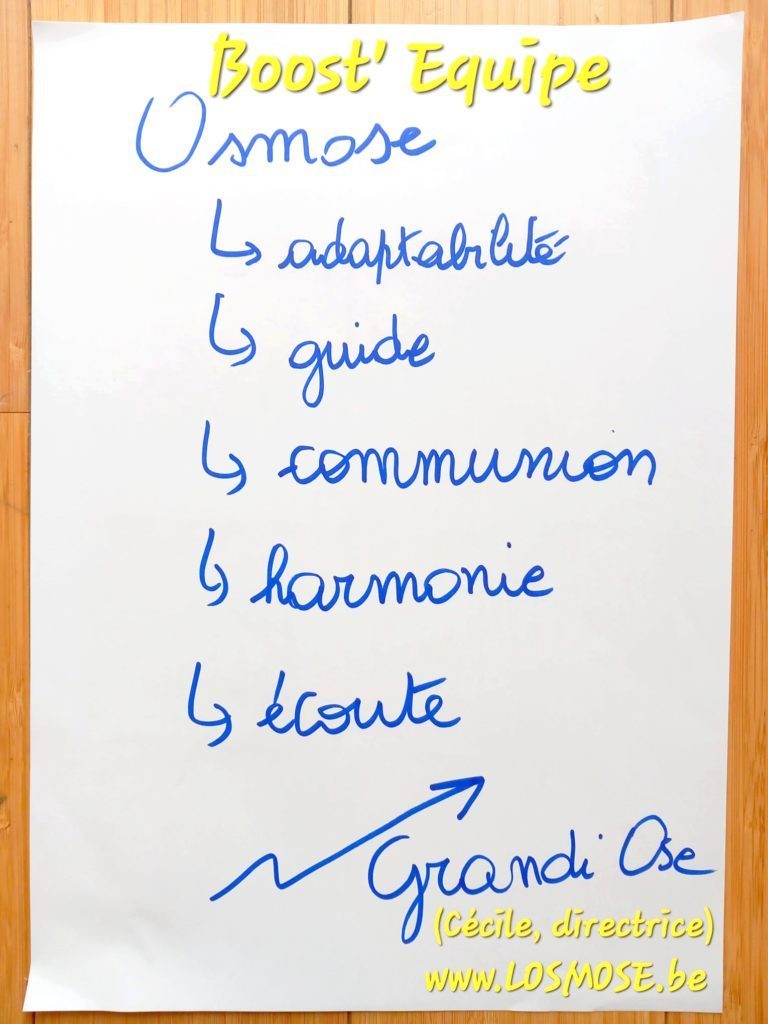 Boost' Equipe
Osmose
adaptabilité
guide
communion
harmonie
écoute
Grandi Ose
(Cécile, directrice)
www.LOSMOSE.be